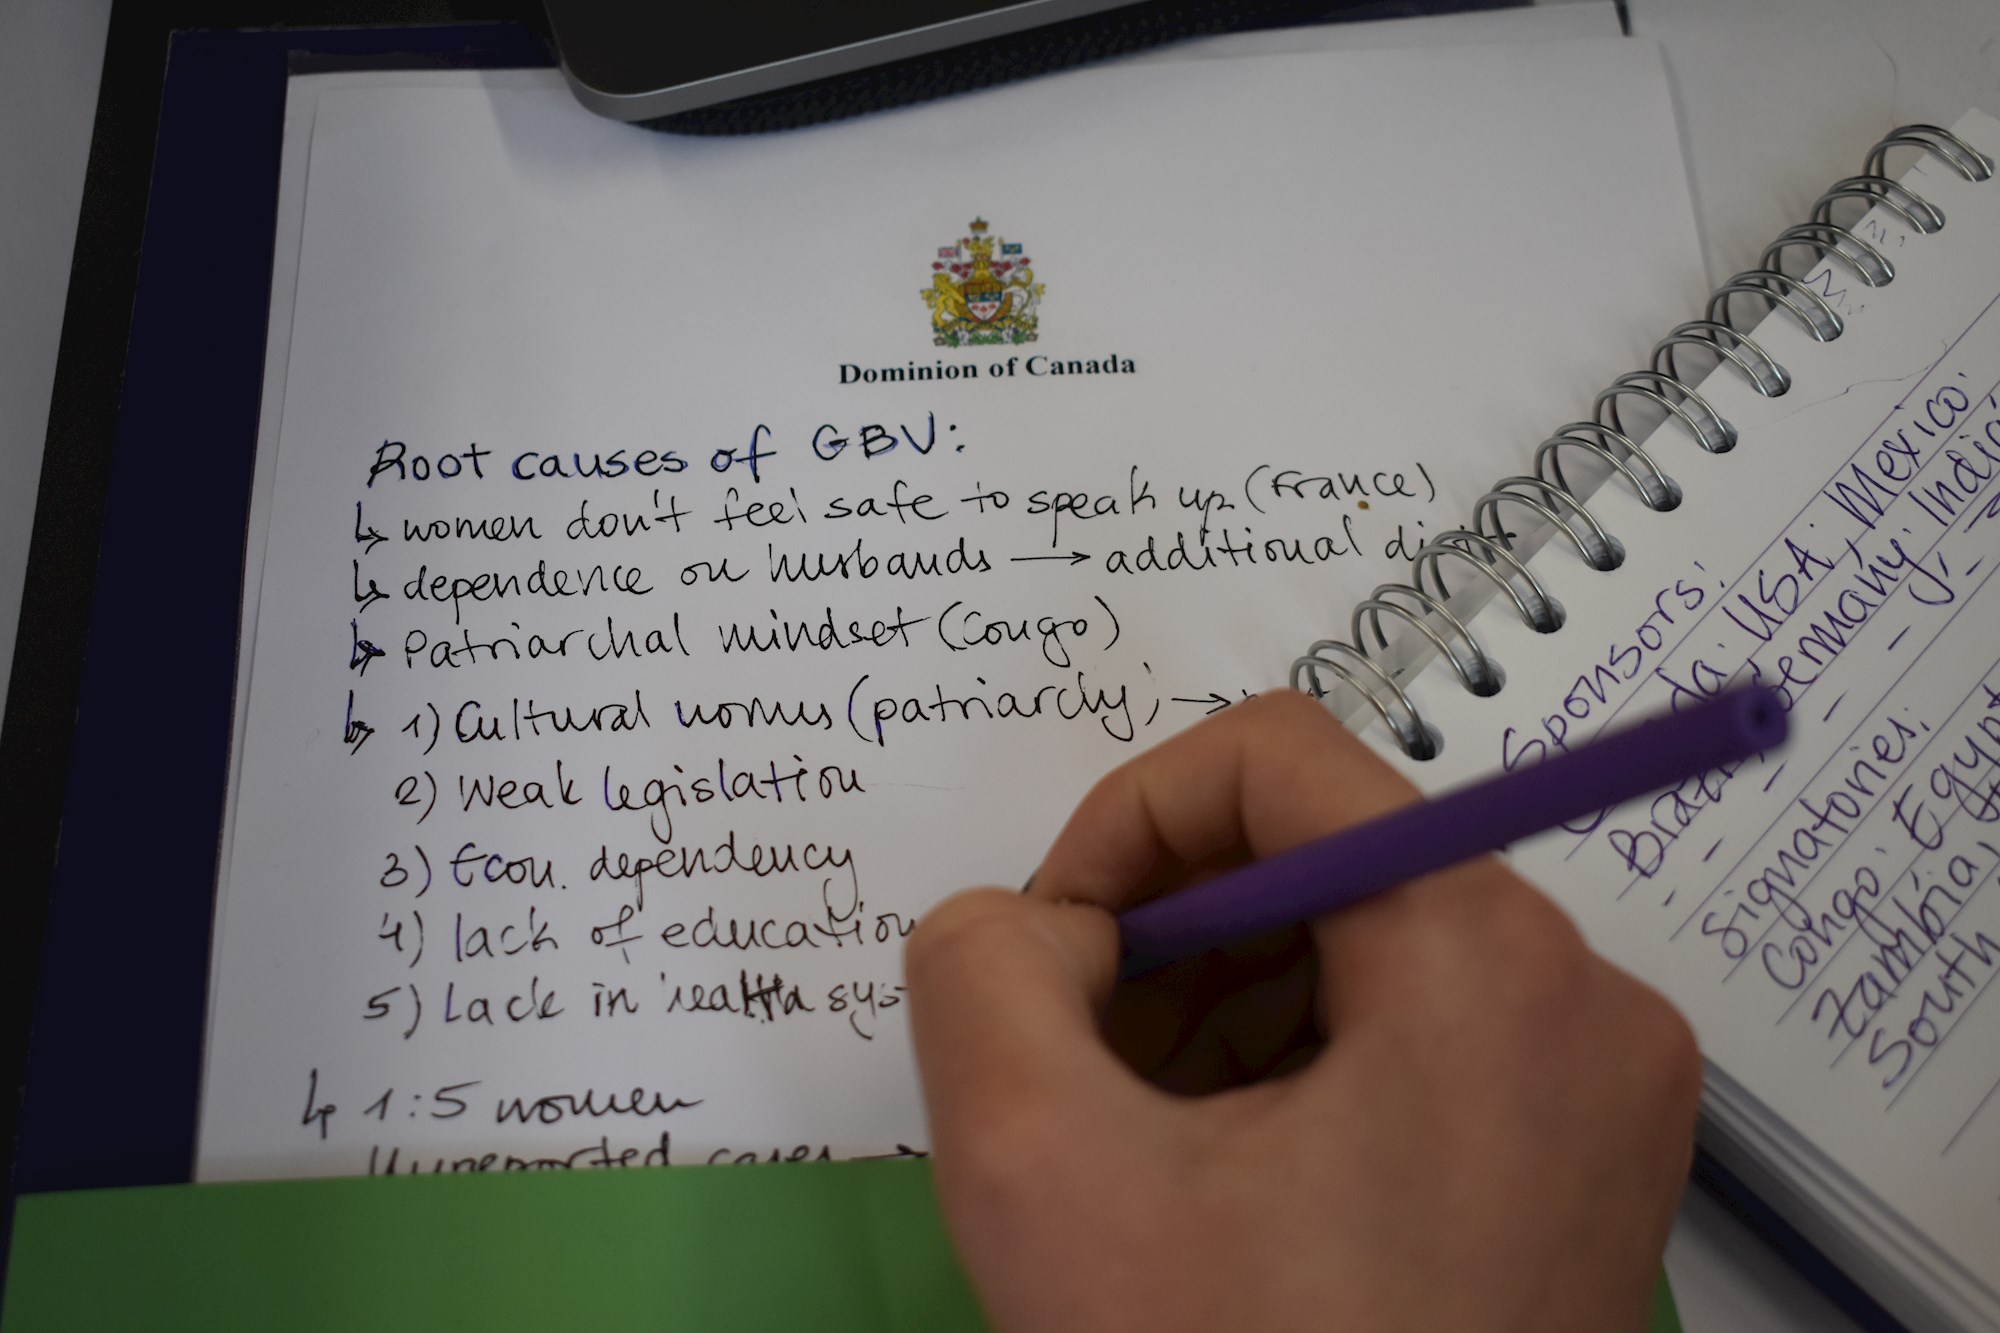 Dominion of Canada
Root causes of GBV:
↳ women don't feel safe to speak up (France)
↳ dependence on husbands → additional
↳ Patriarchal mindset (Congo)
↳ 1) Cultural norms (patriarchy; →
2) Weak legislation
3) Econ. dependency
4) lack of education
5) Lack in health sys
↳ 1:5 women
Unreported cases →
Sponsors:
USA; Mexico;
Germany;
Signatories:
Congo; Egypt
Zambia,
South